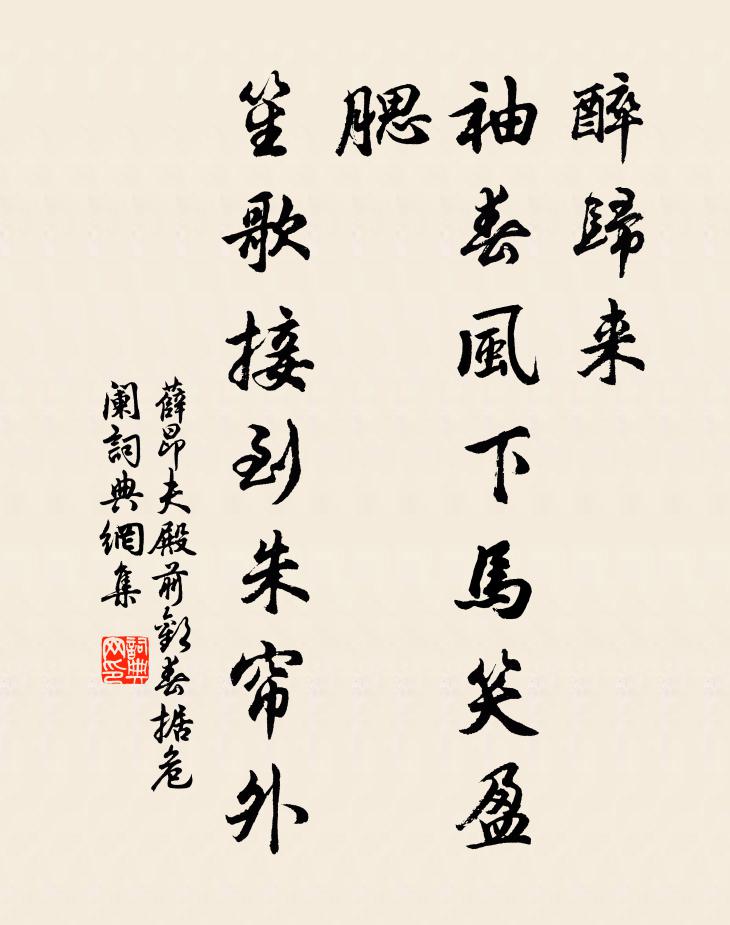 醉歸来
袖春風下馬笑盈
腮
笙歌接到朱帘外
薛昂夫殿前歡春据危
阑詞典網集
詞典
网印